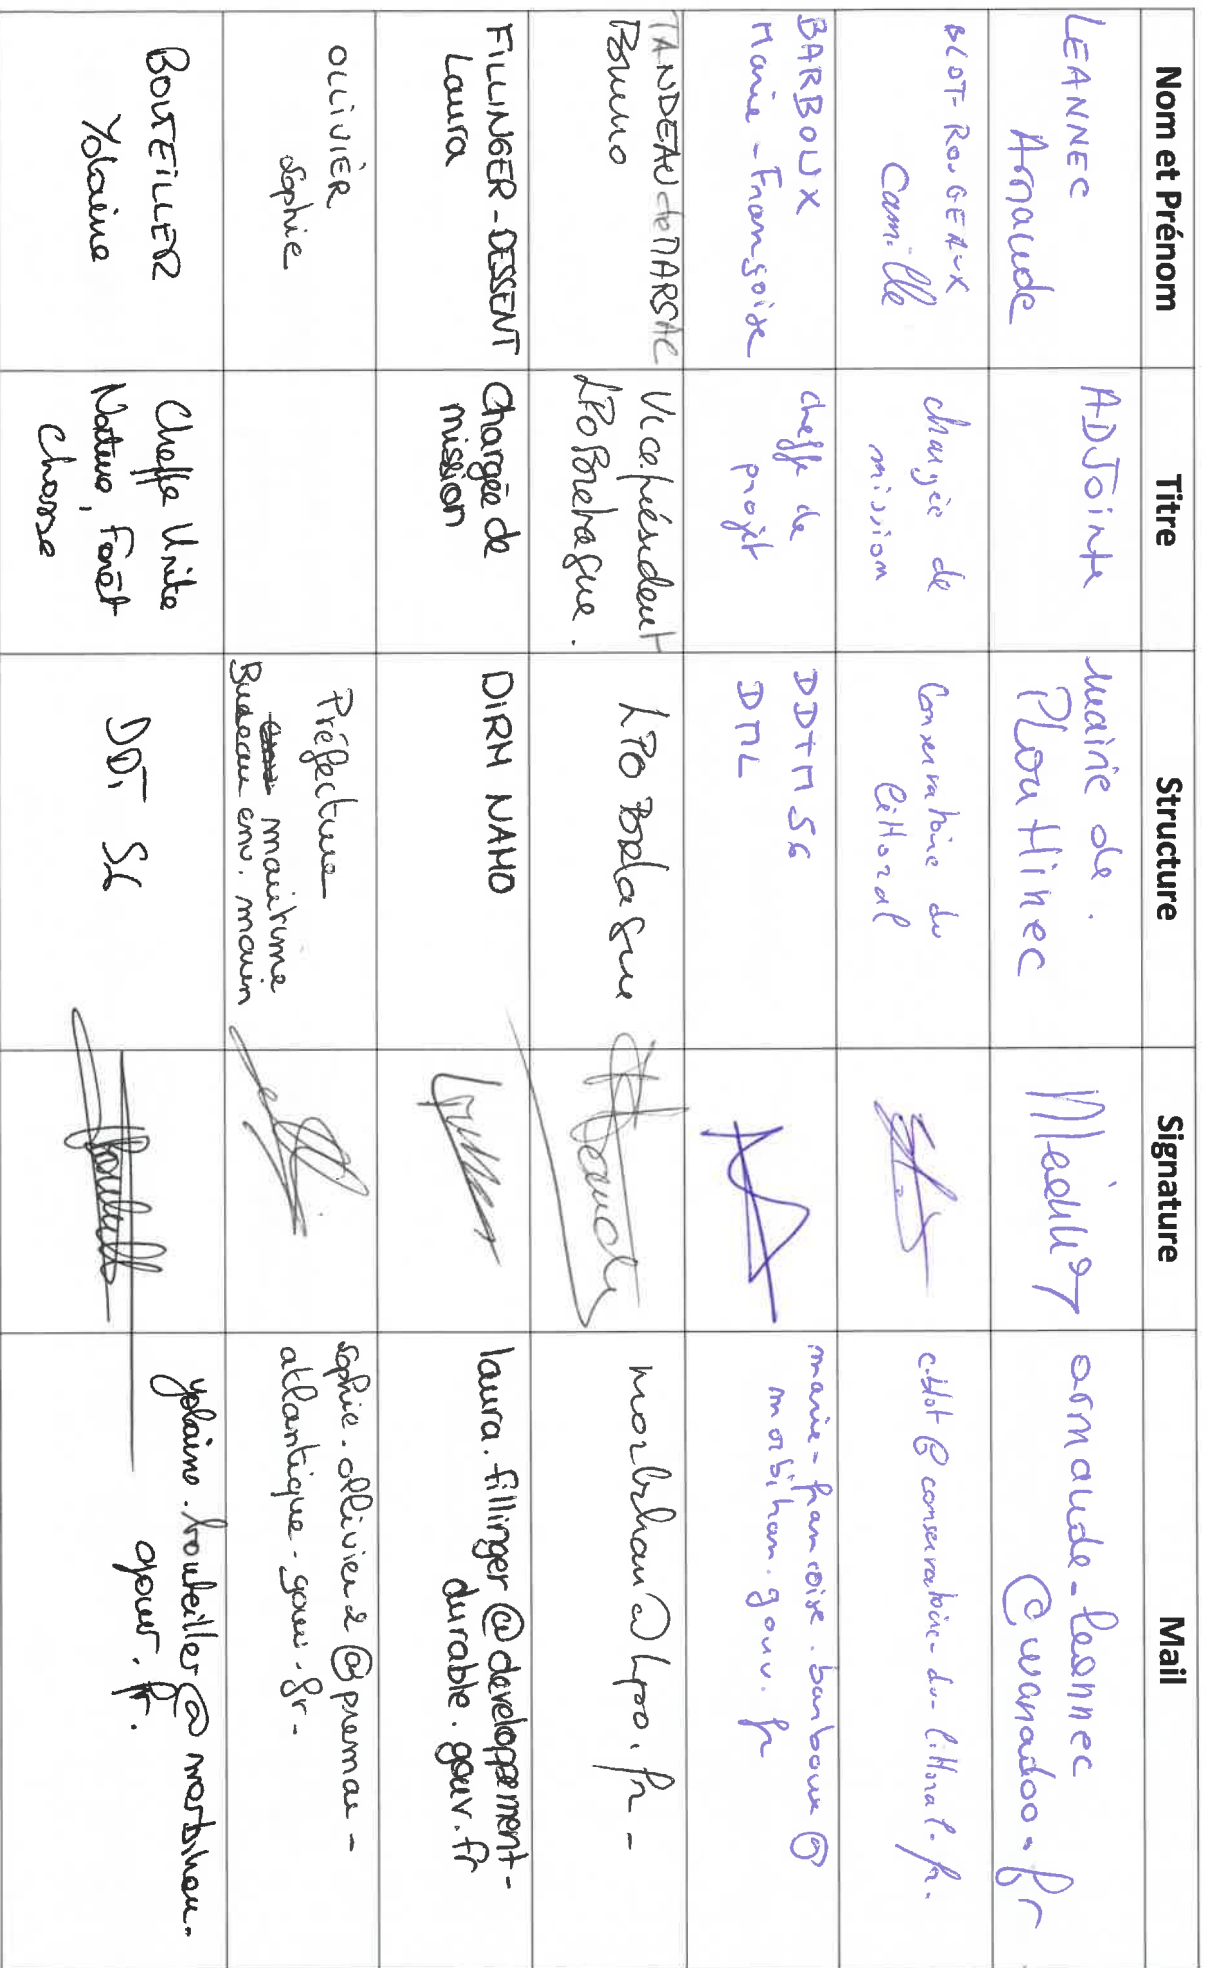 Nom et Prénom
Titre
Structure
Signature
Mail
LEANNEC
Armaude
ADJointe
Mairie de
PLouHinec
armaude-leannec
@wanadoo.fr
BLOT-ROUGEAUX
Camille
chargée de
mission
Conservatoire du
littoral
c.blot@conservatoire-du-littoral.fr.
BARBOUX
Marie-Françoise
cheffe de
projet
DDTM 56
DML
marie-francoise.barboux@
morbihan.gouv.fr
TANDEAU de MARSAC
Bruno
Vice président
LPO Bretagne.
LPO Bretagne
morbihan@lpo.fr-
FILLINGER-DESSENT
Laura
Chargée de
mission
DIRM NAMO
laura.fillinger@developpement-
durable.gouv.fr
OLLIVIER
Sophie
Préfecture
maritime
Bureau env. marin
sophie.ollivier2@premar-
atlantique.gouv.fr-
BOUTEILLER
Yolaine
Cheffe Unité
Nature, Forêt
Chasse
yolaine.bouteiller@morbihan.
gouv.fr.